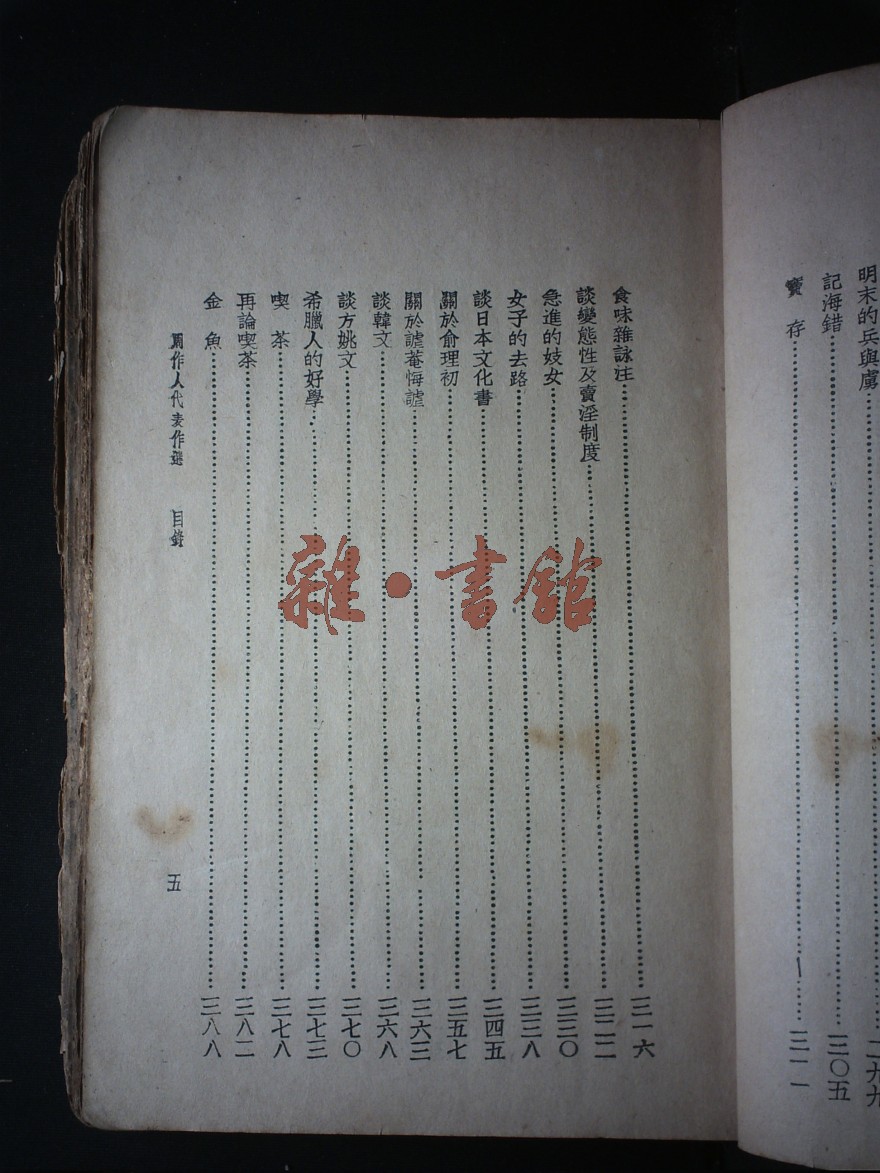 明末的兵與虜……二九九
記海錯……三〇五
竇存……三一一
食味雜詠注……三一六
談變態性及賣淫制度……三二二
急進的妓女……三三〇
女子的去路……三三八
談日本文化書……三四五
關於俞理初……三五七
關於謔菴悔謔……三六三
談韓文……三六八
談方姚文……三七〇
希臘人的好學……三七三
喫茶……三七八
再論喫茶……三八二
金魚……三八八
周作人代表作選 目錄 五
雜·書館